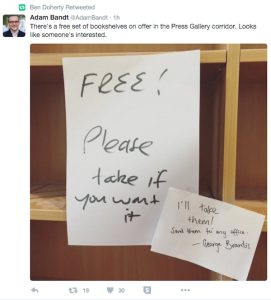 Ben Doherty Retweeted
Adam Bandt @AdamBandt · 1h
There's a free set of bookshelves on offer in the Press Gallery corridor. Looks
like someone's interested.
FREE!
Please
take if
you want
it
I'll take
them!
Send them to my office.
– George Brandis
19
30